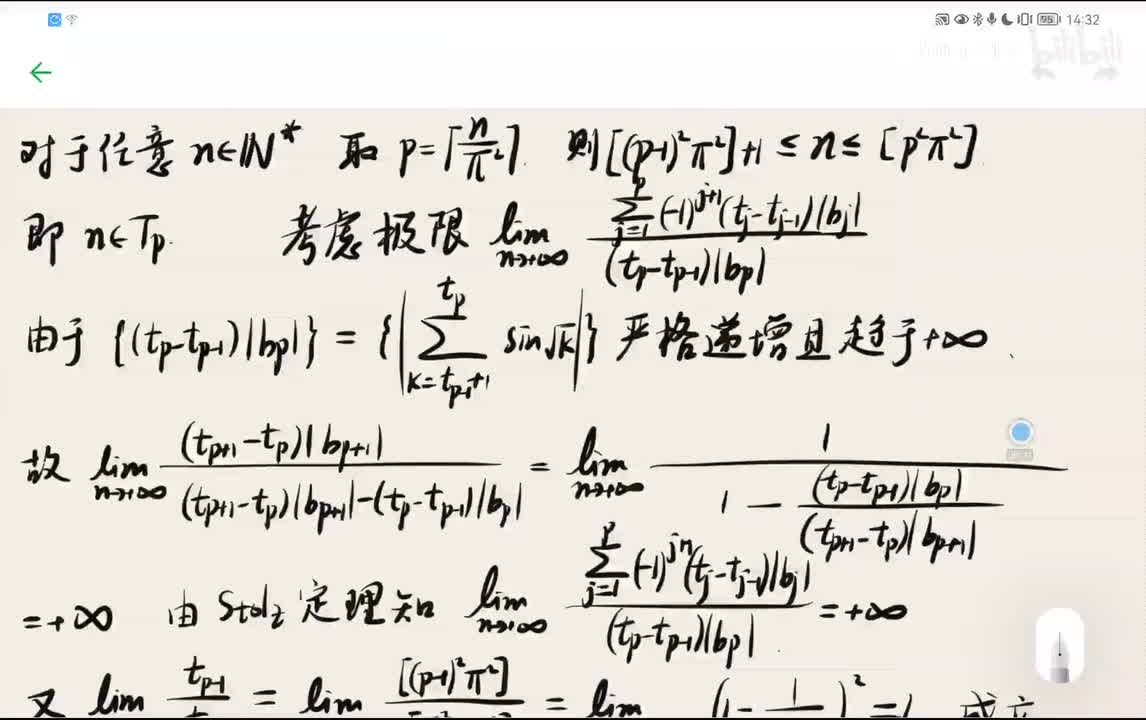 14:32
bilibili
对于任意 n∈ℕ* 取 p=⌈n/π²⌉. 则[(p-1)²π²]+1 ≤ n ≤ [p²π²].
即 n∈Tp. 考虑极限 lim_{n→+∞} (∑_{j=1}^{p} (-1)^{j+1}(t_j-t_{j-1})|b_j|)/((t_p-t_{p-1})|b_p|)
由于 {(t_p-t_{p-1})|b_p|} = {|∑_{k=t_{p-1}+1}^{t_p} sin√k|} 严格递增且趋于+∞.
故 lim_{n→+∞} ((t_{p+1}-t_p)|b_{p+1}|)/((t_{p+1}-t_p)|b_{p+1}|-(t_p-t_{p-1})|b_p|) = lim_{n→+∞} 1/(1-((t_p-t_{p-1})|b_p|)/((t_{p+1}-t_p)|b_{p+1}|))
=+∞ 由 Stolz 定理知 lim_{n→+∞} (∑_{j=1}^{p} (-1)^{j+1}(t_j-t_{j-1})|b_j|)/((t_p-t_{p-1})|b_p|) = +∞
又 lim t_{p-1}/t = lim [(p-1)²π²]/ = lim (1-1/)²=1